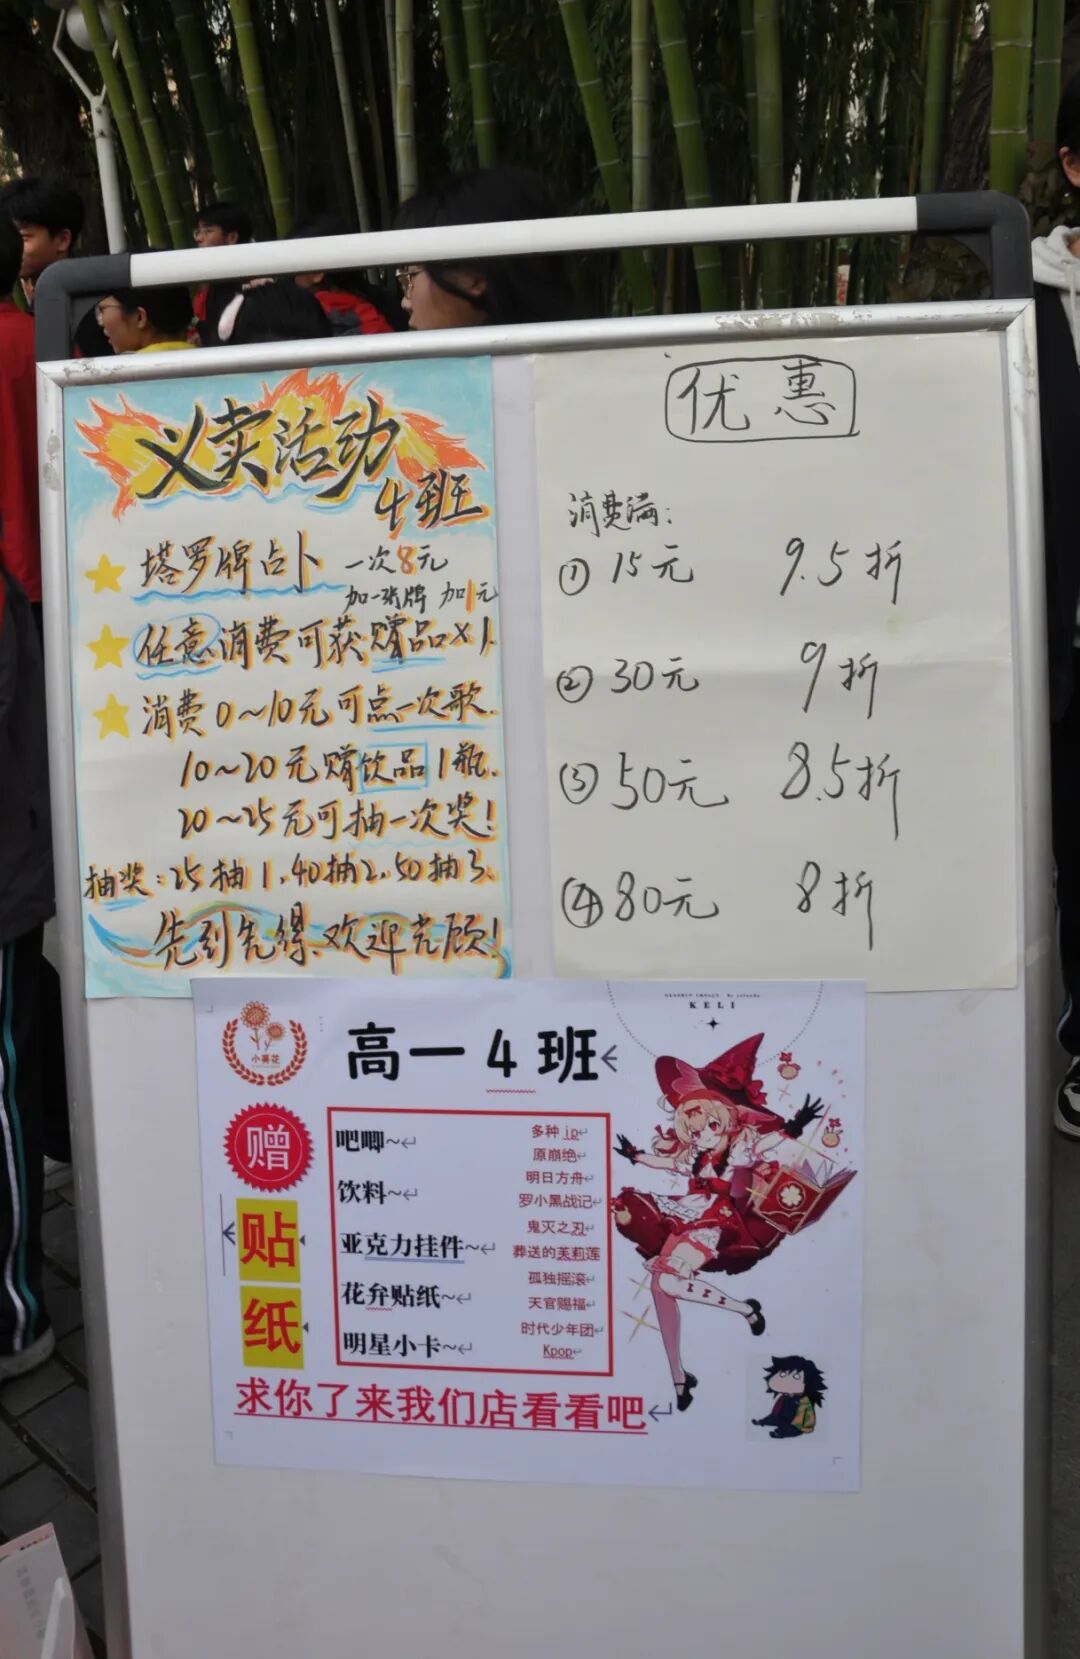 义卖活动
4班
塔罗牌占卜 一次8元
加一张牌 加1元
任意消费可获赠品×1.
消费0~10元可点一次歌.
10~20元赠饮品1瓶.
20~25元可抽一次奖!
抽奖:25抽1.40抽2.50抽3.
先到先得.欢迎光顾!
优惠
消费满:
① 15元 9.5折
② 30元 9折
③ 50元 8.5折
④ 80元 8折
小葵花
高一4班
KELI
赠
贴
纸
吧唧~
饮料~
亚克力挂件~
花弁贴纸~
明星小卡~
多种ip
原崩绝
明日方舟
罗小黑战记
鬼灭之刃
葬送的芙莉莲
孤独摇滚
天官赐福
时代少年团
Kpop
求你了来我们店看看吧